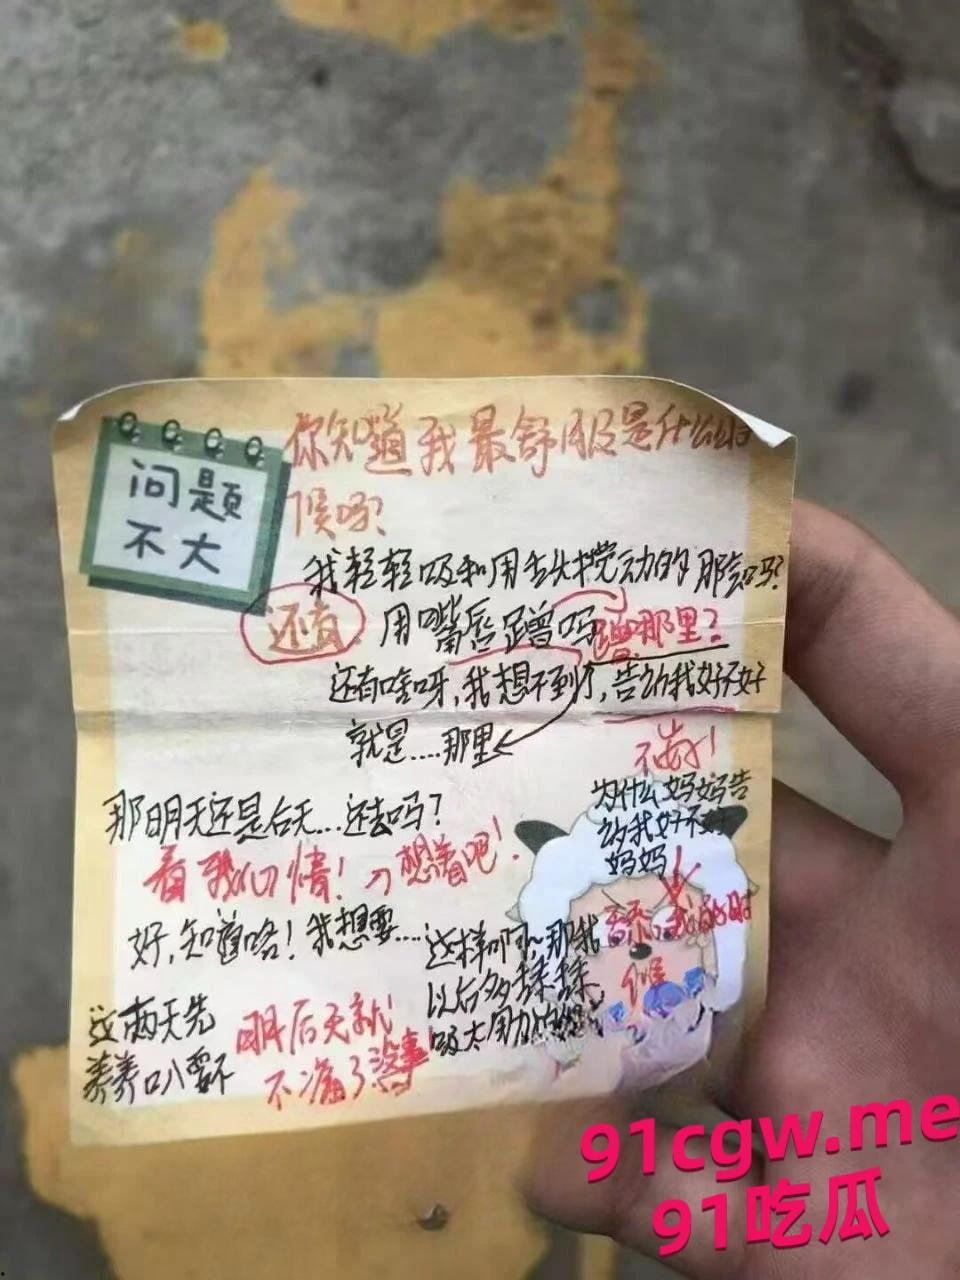 问题
不大
你知道我最舒服是什么时
候吗?
我轻轻吸和用舌头搅动的那会吗?
还有 用嘴唇蹭吗 蹭那里?
还有啥呀,我想不到了,告诉我好不好
就是....那里
不告!
为什么妈妈告
诉我好不好
妈妈
那明天还是后天...还去吗?
看我心情! 想着吧!
好,知道咯!我想要....
舔我的时
候
这样啊~那我
以后多揉揉
吸太用力
这两天先
养养
明后天就
不痛了没事
91cgw.me
91吃瓜